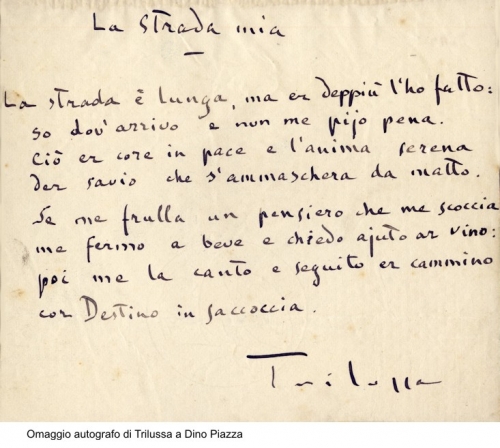 La strada mia
La strada è lunga, ma er deppiù l'ho fatto:
so dov'arrivo e nun me pijo pena.
Ciò er core in pace e l'anima serena
der savio che s'ammaschera da matto.
Se me frulla un pensiero che me scoccia
me fermo a beve e chiedo ajuto ar vino:
poi me la canto e seguito er cammino
cor Destino in saccoccia.
Trilussa
Omaggio autografo di Trilussa a Dino Piazza